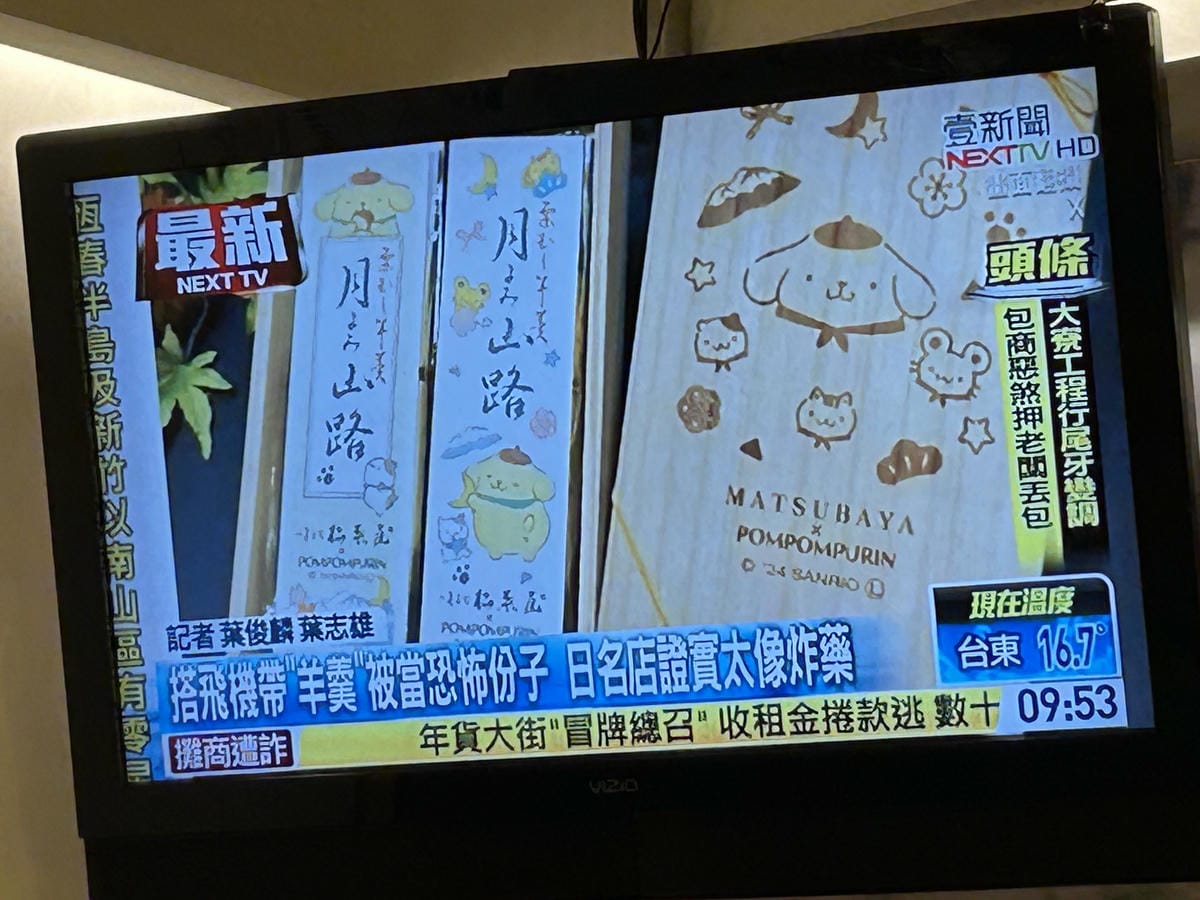 壹新聞
NEXTTV HD
最新
NEXT TV
頭條
大寮工程行尾牙變調
包商惡煞押老闆丟包
恆春半島及新竹以南山區有零星
月よみ山路
月よみ山路
POMPOMPURIN
POMPOMPURIN
MATSUBAYA
×
POMPOMPURIN
SANRIO
現在溫度
台東 16.7°
記者 葉俊麟 葉志雄
搭飛機帶"羊羹"被當恐怖份子 日名店證實太像炸藥
攤商遭詐
年貨大街"冒牌總召" 收租金捲款逃 數十
09:53
VIZIO